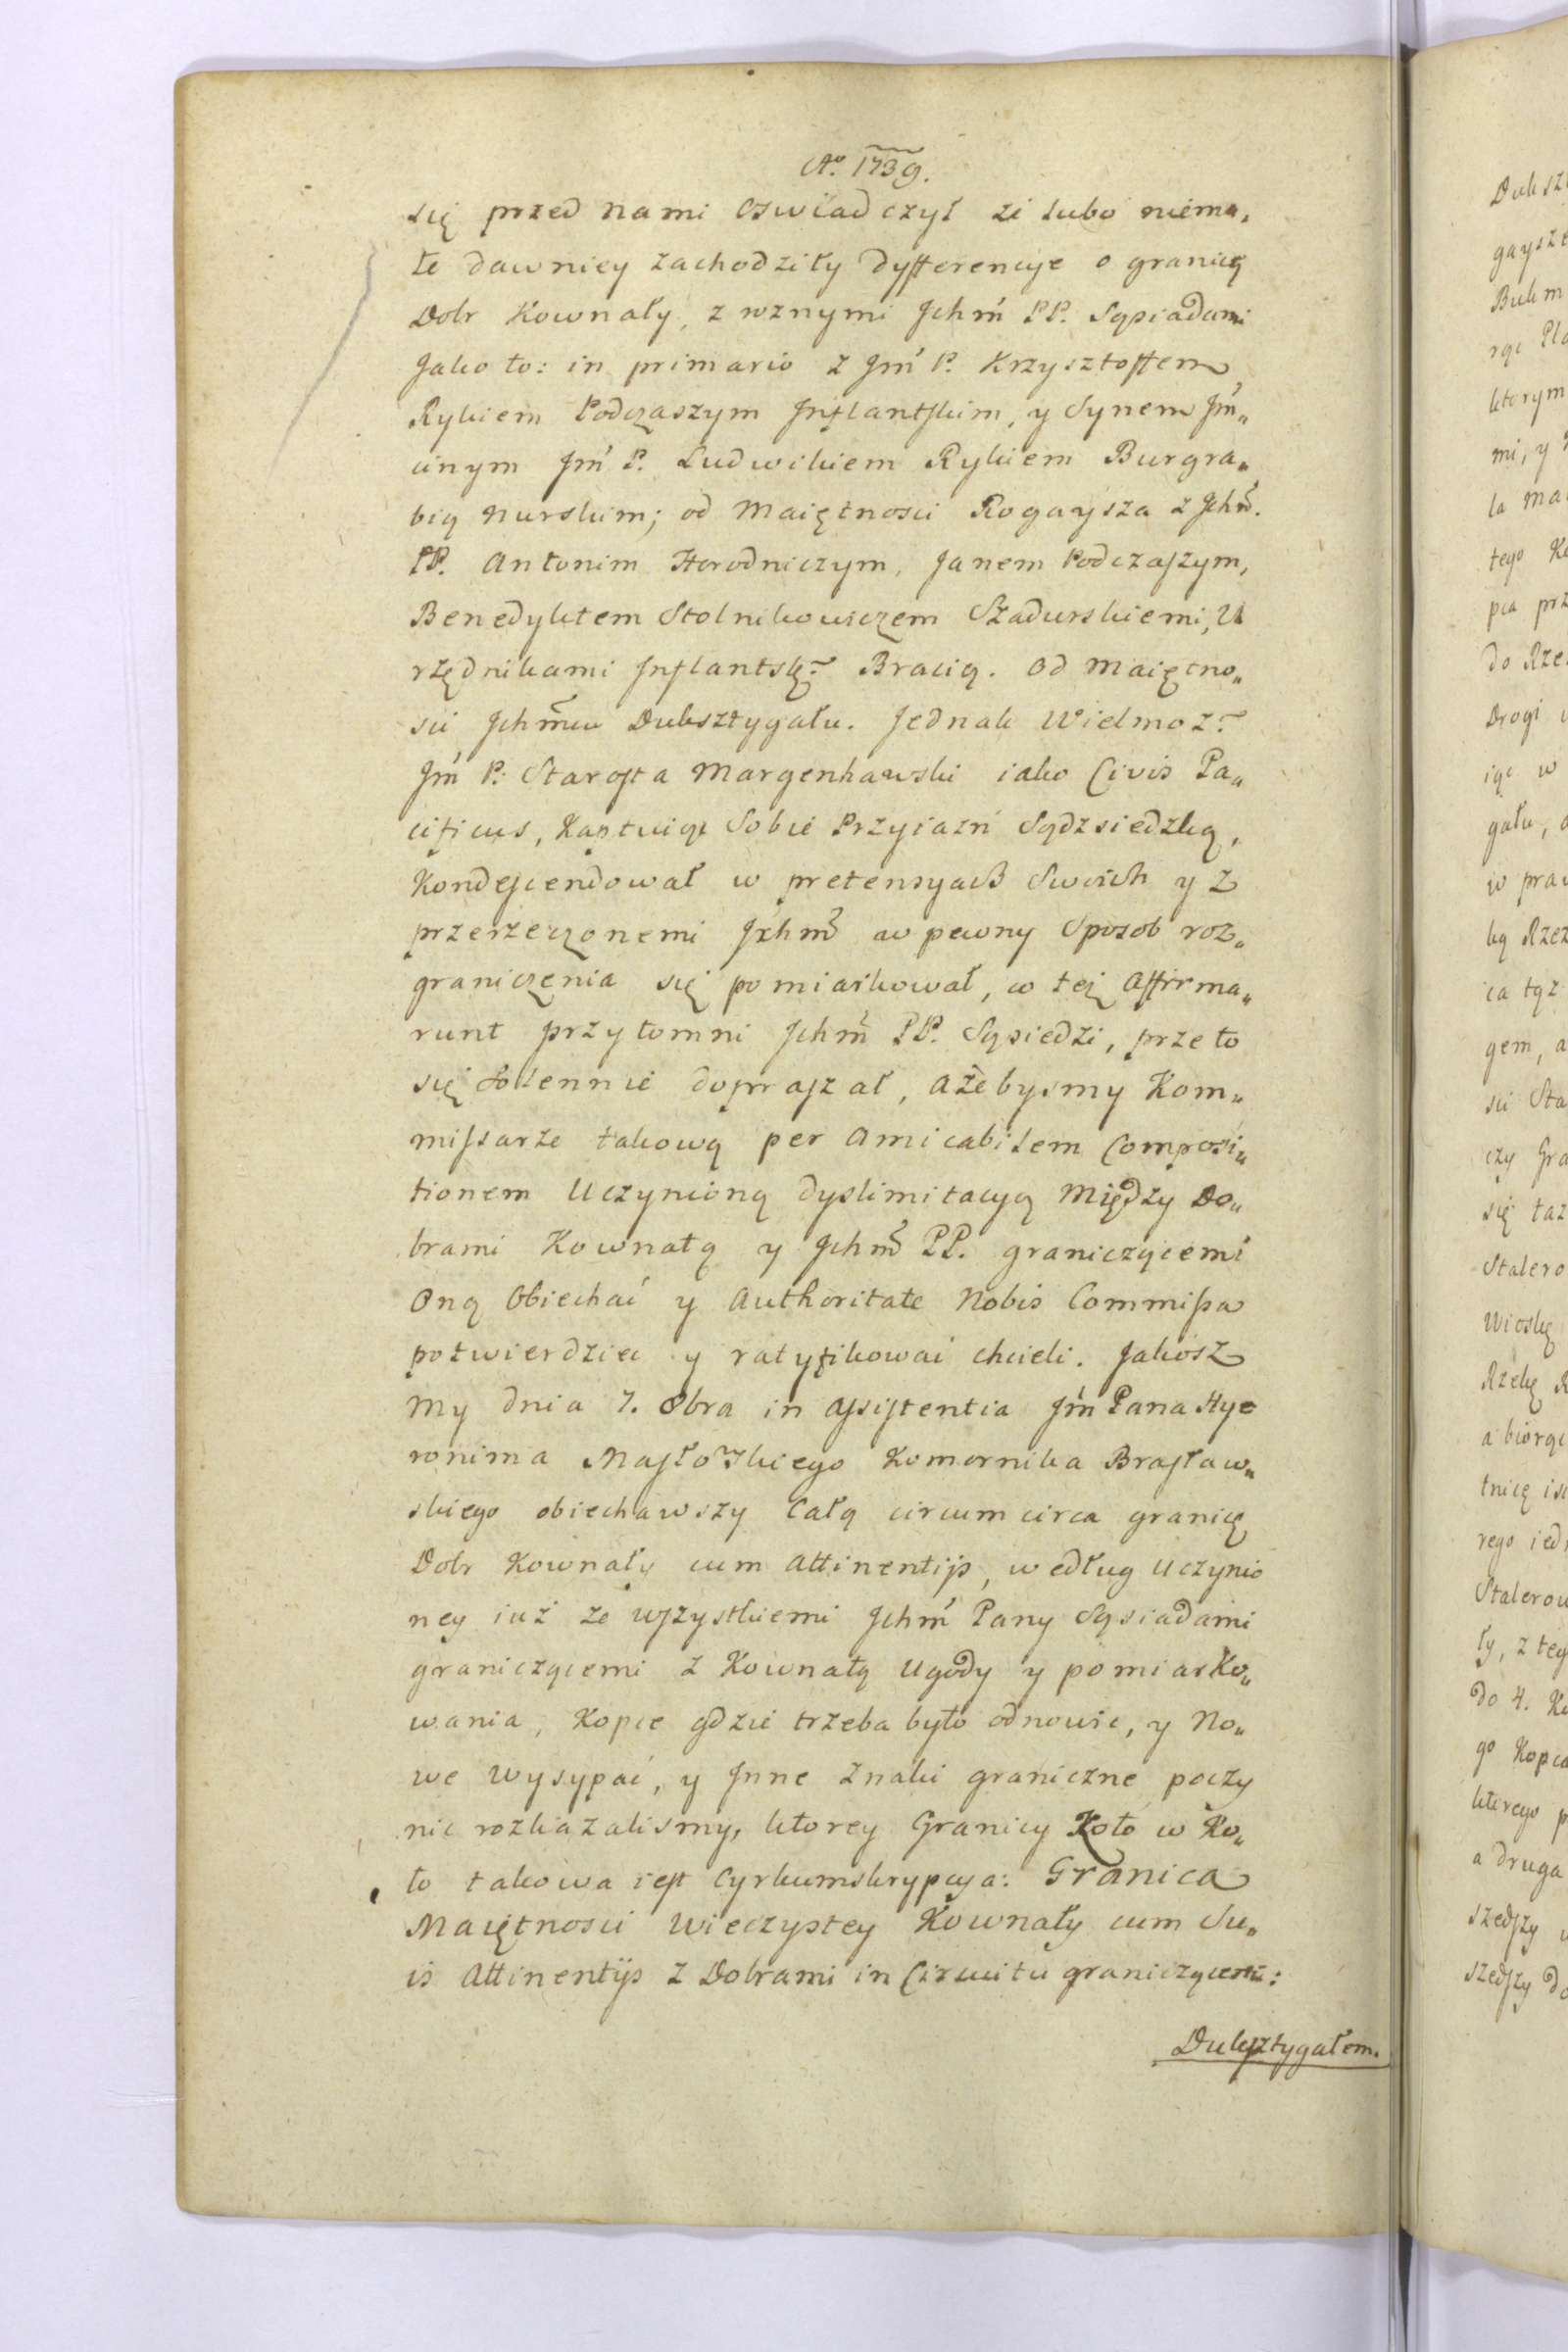 Aº. 1739.
się przed nami oswiadczył zi lubo niema„
łe dawniey zachodziły dyfferencye o granicę
Dobr Kownały, z roznymi Jchḿ PP. Sąsiadami
Jako to: in primario z Jḿ P. Krzysztoffem
Rykiem Podczaszym Jnflantskim, y Synem Jḿ„
cinym Jḿ P. Ludwikiem Rykiem Burgra„
bią Nurskim; od Maiętnosci Rogaysza z Jchm̃.
PP. Antonim Horodniczym, Janem Podczaszym,
Benedyktem Stolnikowiczem Szadurskiemi, U
rzędnikami Jnflantsk:̃ Bracią. Od Maiętno„
sci Jchm̃ciu Duksztygału. Jednak Wielmoz:̃
Jḿ P: Starosta Margenhawski iako Civis Pa„
cificus, Kaptuiąc Sobie Przyiazń Sądzsiedzką,
Kondescendował w pretensyach Swoich y z
przerzeczonemi Jchm̃ w pewny Sposob roz„
graniczenia się pomiarkował, co też affirma„
runt przytomni Jchm̃ PP. Sąsiedzi, przeto
się solennie dopraszał, ażebysmy Kom„
missarze takową per amicabilem Composi„
tionem Uczynioną dyslimitacyą Między Do„
brami Kownatą y Jchm̃ PP. graniczącemi
Oną Obiechać y Authoritate Nobis Commissa
potwierdzieć y ratyfikować chcieli. Jakosz
My dnia 7. 8bra in assistentia Jḿ Pana Hye
ronima Masłowskiego Komornika Brasław„
skiego obiechawszy Całą circumcirca granicę
Dobr Kownały cum attinentijs, według Uczynio
ney iuż ze wszystkiemi Jchḿ Pany Sąsiadami
graniczącemi z Kownatą Ugody y pomiarko„
wania, Kopce gdzie trzeba było odnowic, y No„
we wysypać, y Jnne Znaki graniczne poczy
nic rozkazalismy, ktorey Granicy Koło w Ko„
ło takowa iest Cyrkumskrypcya: Granica
Maiętnosci Wieczystey Kownały cum Su„
is Attinentijs z Dobrami in Circuitu graniczącemi:
Duksztygałem.